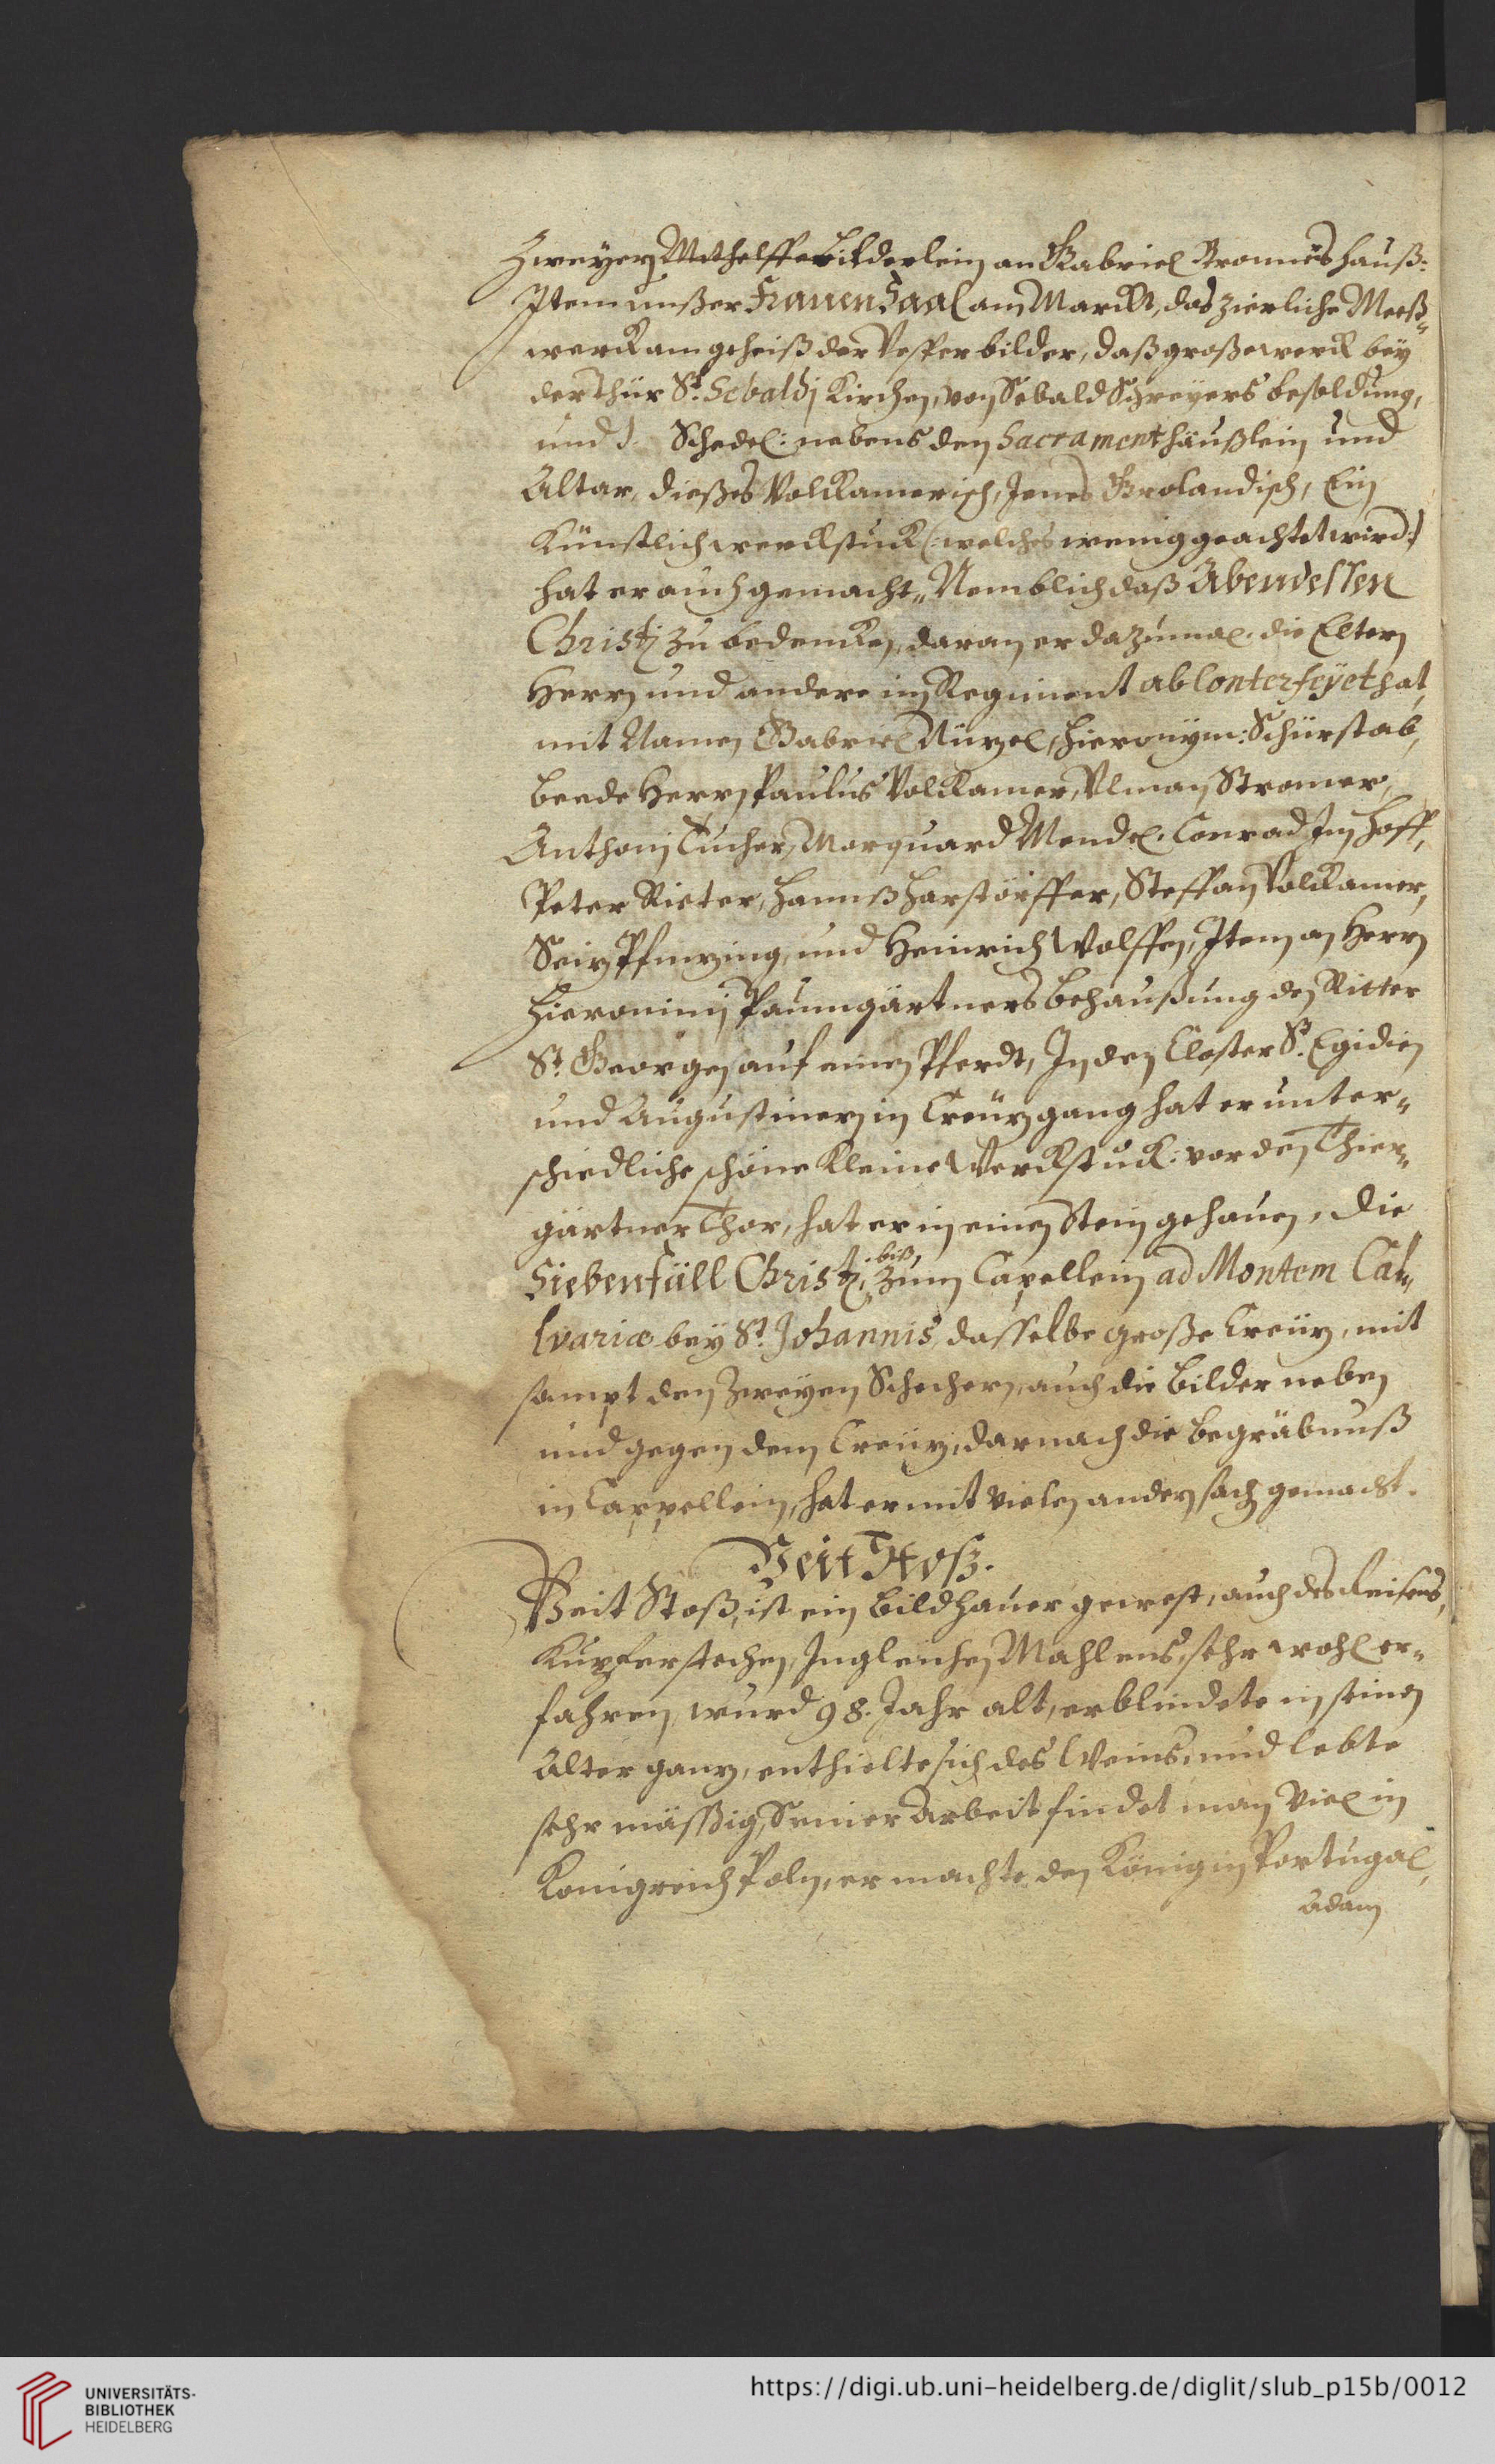 Zweyer Mithelffer bilderlein an Gabriel Bronners hauß:
Item unßer Frauen Saal am Marckt, das zierliche Meeß„
werck am geheiß der Vesper bilder, daß große werck bey
der thür St. Sebaldj Kirchen, von Sebald Schreyers besoldung,
und Schedel: nebens den Sacrament häußlein und
Altar, dießes Volckamerisch, Jenes Grolandisch, Ein
Künstlich werckstuck (: welches wenig geachtet wird:)
hat er auch gemacht, Nemblich daß Abendessen
Christj zu bedencken, daran er dazumal die Eltern
Herrn und andere im Regiment abConterfeyet hat,
mit Namen Gabriel Nüzel, Hieronÿm: Schürstab,
beede Herrn Paulus Volckamer, Ulman Stromer,
Anthonj Tucher, Marquard Mendel, Conrad Im hoff,
Peter Rieter, Hannß Harstörffer, Steffan Volckamer,
Seiz Pfinzing, und Heinrich Wolffen, Item an Herrn
Hieronimj Paumgärtners behaußung den Ritter
St. Georgen auf einen Pferdt, In den Closter St. Egidien
und Augustinern in Creuzgang hat er unter„
schiedliche schöne kleine Werckstuck: vor den Thier„
gärtner Thor, hat er in einen Stein gehauen, die
Siebenfäll Christj, biß, zum Capellein ad Montem Cal„
lvariæ bey St. Johannis, dasselbe große Creuz, mit
sampt den zweyen Schechern, auch die bilder neben
und gegen dem Creuz, darnach die begräbnuß
in Cappellein, hat er mit vielen andern sach gemacht.
Veit Stosz.
Veit Stoß, ist ein bildhauer gewest, auch des Reisens,
Kupferstechen, Ingleichen Mahlens, sehr wohl er„
fahren, wurd 98. Jahr alt, erblindete in seinen
Alter ganz, enthielte sich des Weins, und lebte
sehr mässßig, Seiner Arbeit findet man viel in
Konigreich Poln, er machte den König in Portugal,
Adam
UNIVERSITÄTS-
BIBLIOTHEK
HEIDELBERG
https://digi.ub.uni-heidelberg.de/diglit/slub_p15b/0012